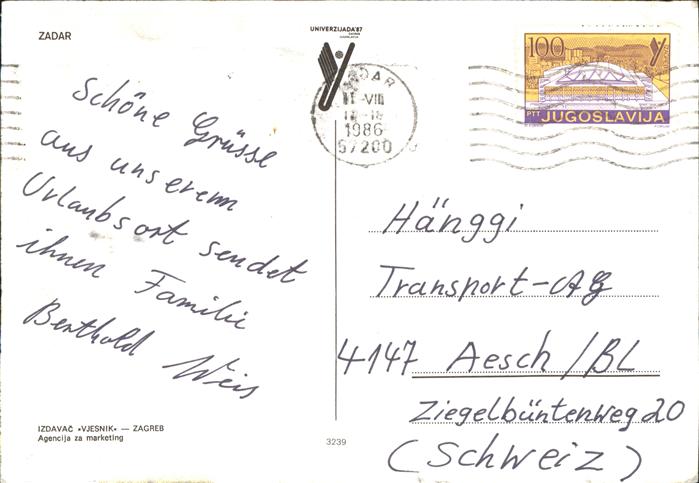 ZADAR
UNIVERZIJADA'87
ZAGREB
JUGOSLAVIJA
Schöne Grüsse
aus unserem
Urlaubsort sendet
ihnen Familie
Berthold Weis
IZDAVAČ »VJESNIK« — ZAGREB
Agencija za marketing
3239
ZADAR
11-VIII
1986
57200
100
PTT JUGOSLAVIJA
Hänggi
Transport-AG
4147 Aesch/BL
Ziegelbüntenweg 20
(Schweiz)